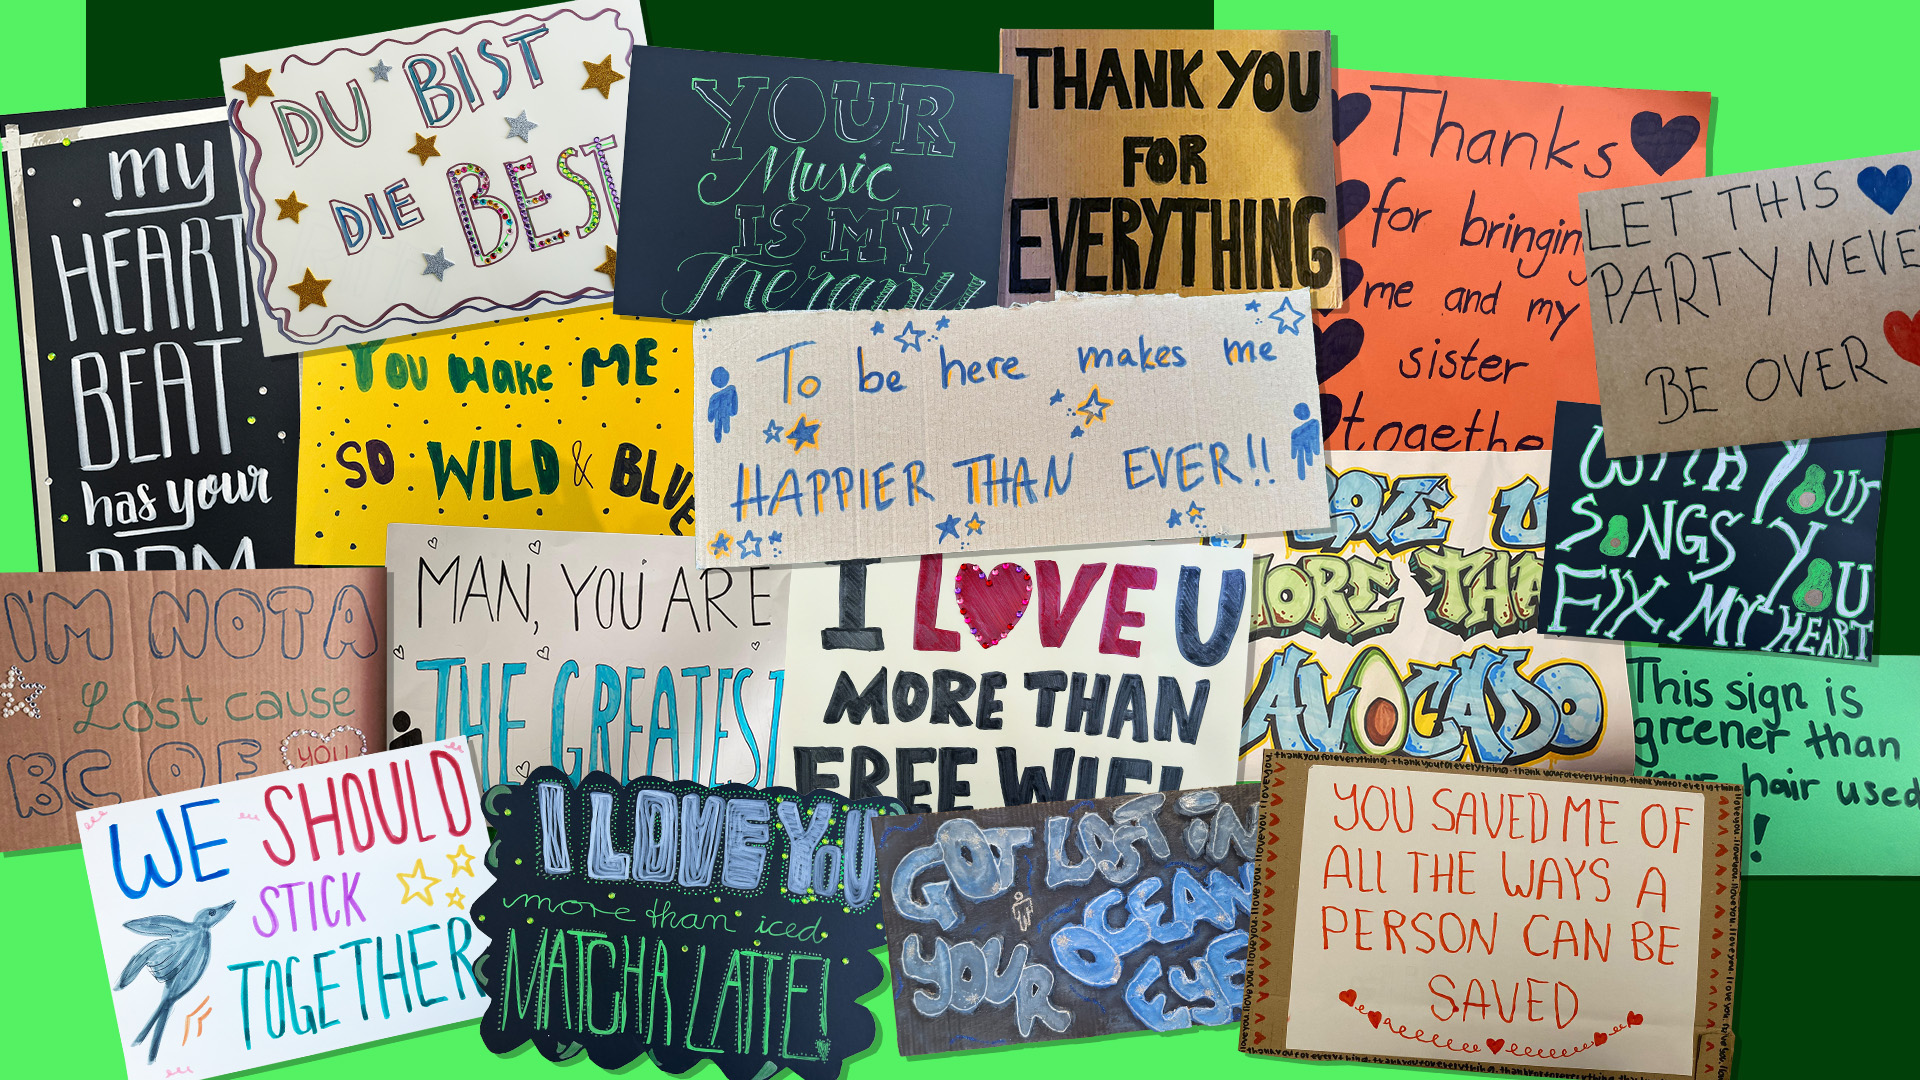 my
HEART
BEAT
has your
BPM
DU BIST
DIE BEST
YOUR
Music
IS MY
Therapy
THANK YOU
FOR
EVERYTHING
Thanks
for bringing
me and my
sister
togethe
LET THIS
PARTY NEVE
BE OVER
YOU MAKE ME
SO WILD & BLUE
To be here makes me
HAPPIER THAN EVER!!
LOVE U
MORE THA
AVOCADO
WITH YOUR
SONGS YOU
FIX MY HEART
I'M NOT A
Lost cause
BC OF YOU
MAN, YOU ARE
THE GREATEST
I LOVE U
MORE THAN
FREE WIFI
This sign is
greener than
hair used
!
WE SHOULD
STICK
TOGETHER
I LOVE YOU
more than iced
MATCHA LATTE!
GOT LOST iN
YOUR OCEAN
EYE
YOU SAVED ME OF
ALL THE WAYS A
PERSON CAN BE
SAVED
thank you for everything. thank you for everything. thank you for everything. thank you for everything
I love you. I love you. I love you. I love you